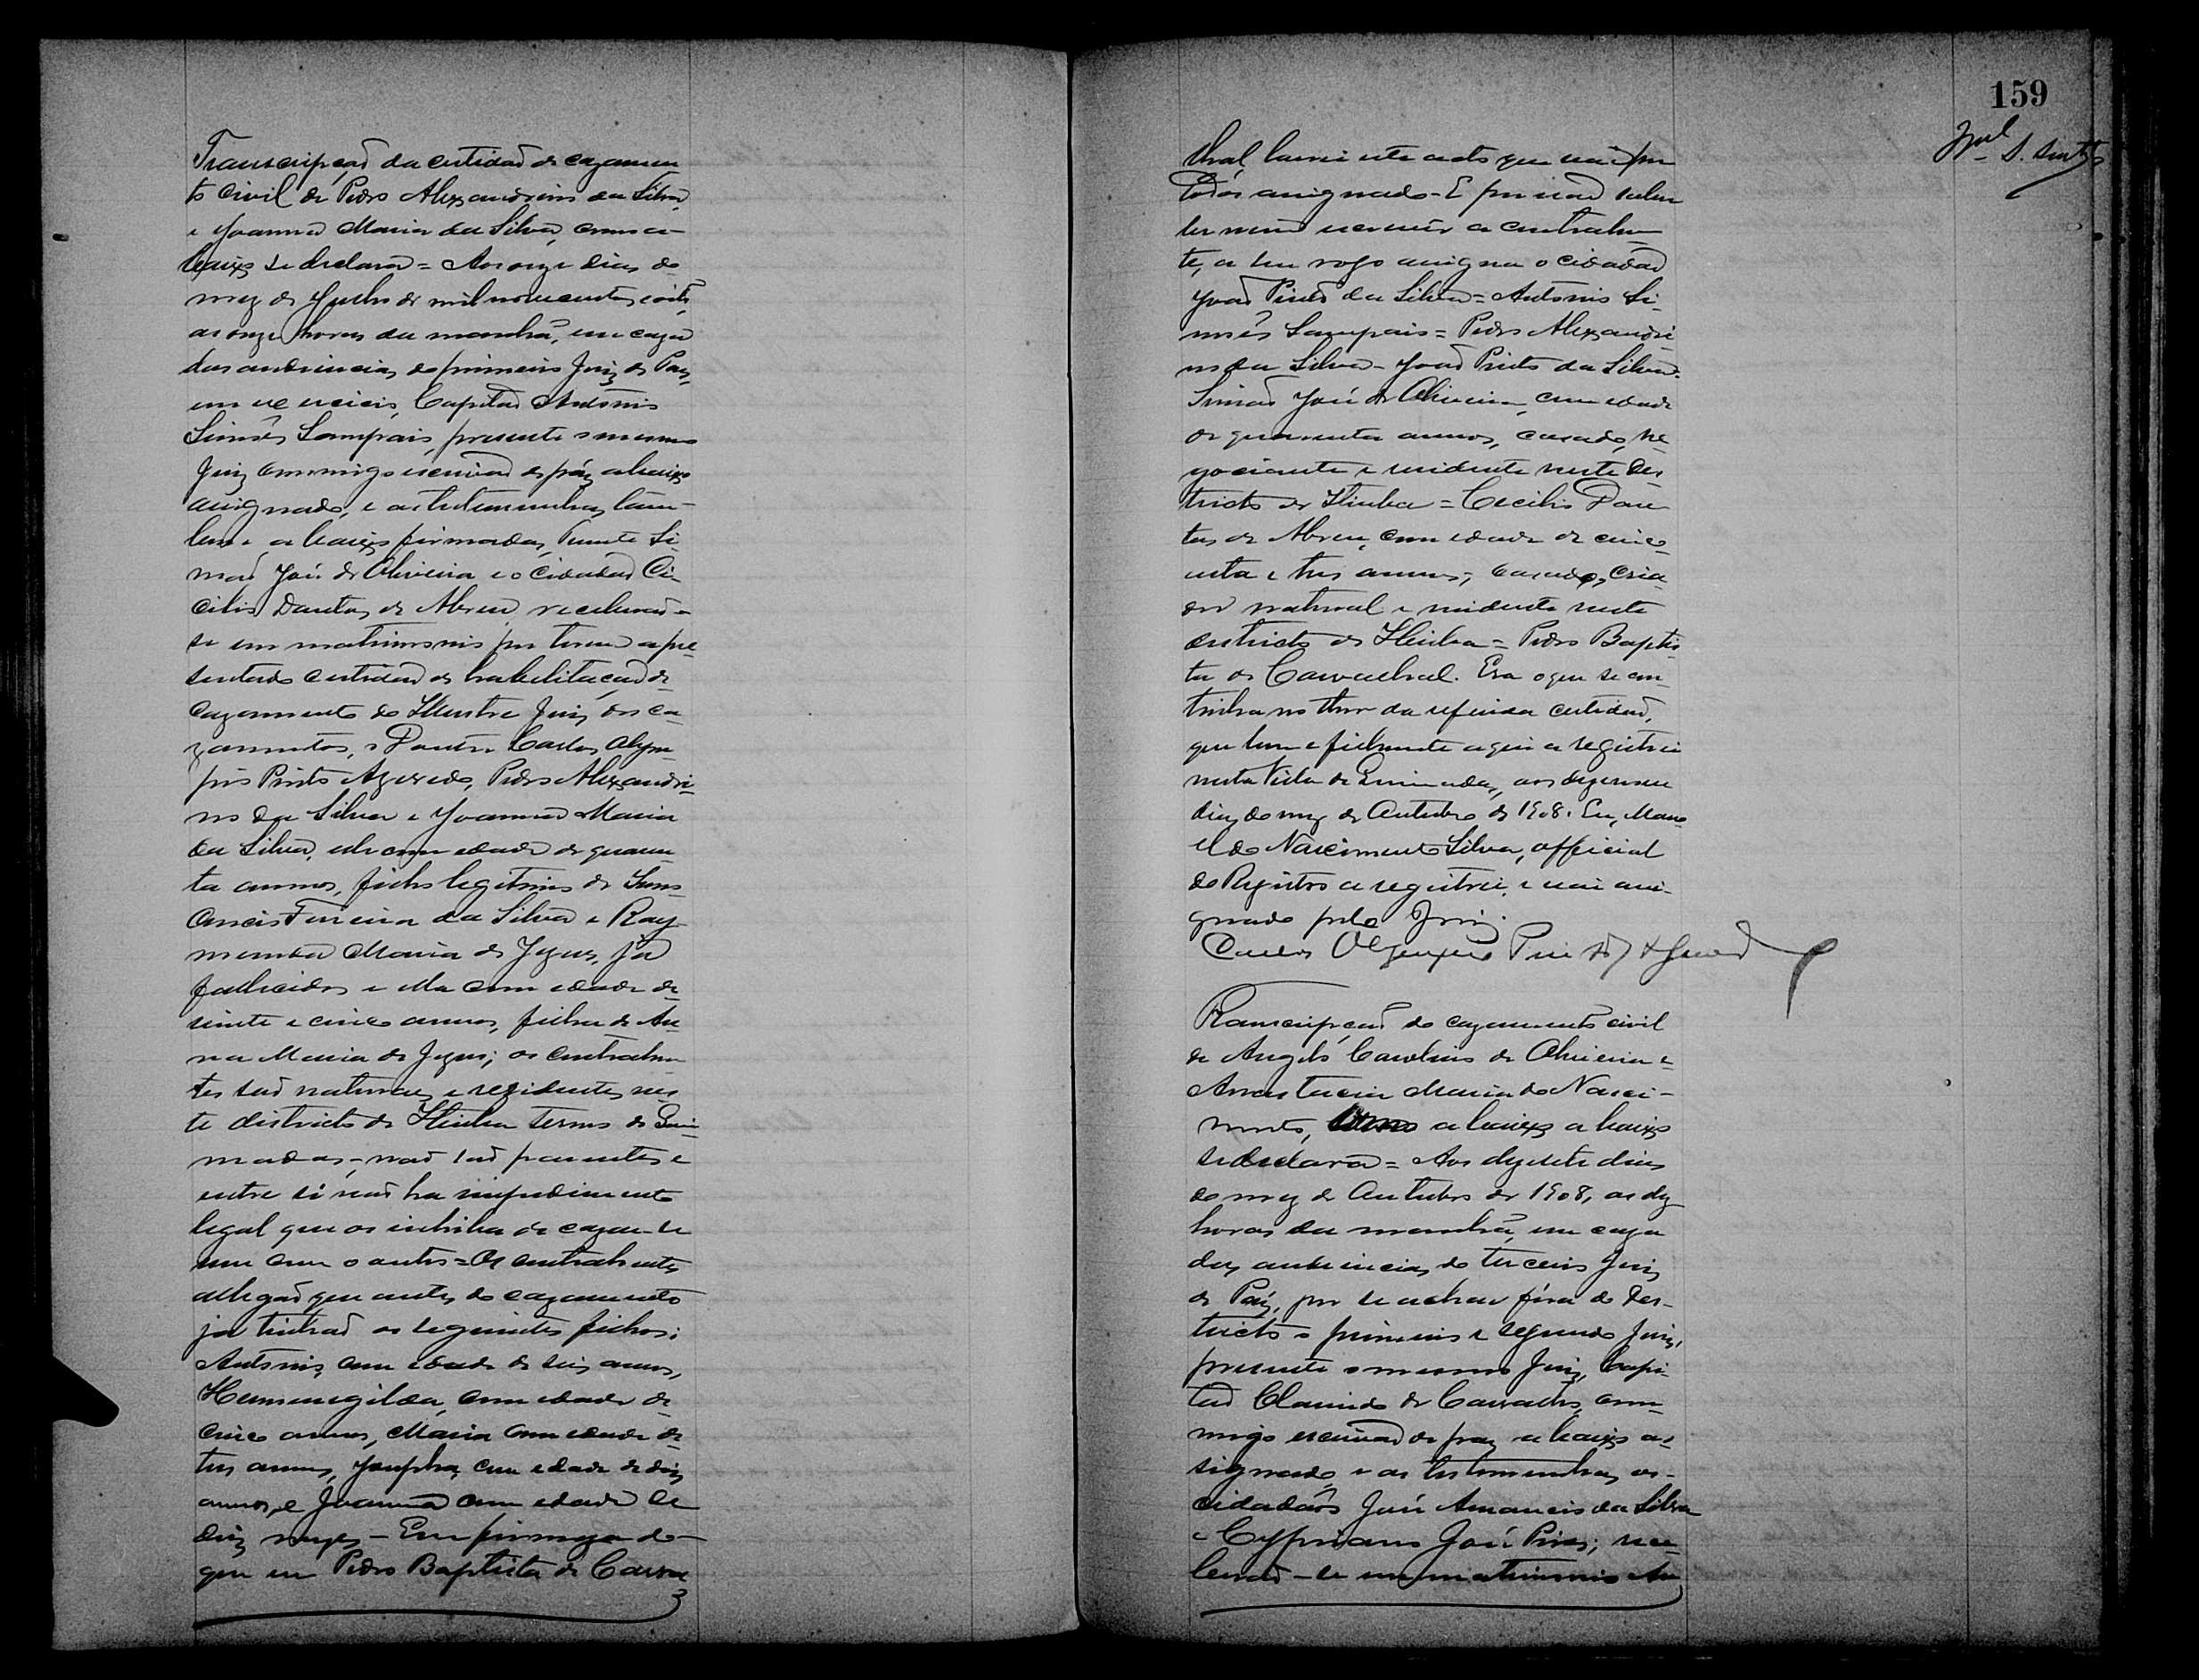 Transcripção da certidão de cazamen
to civil de Pedro Alexandrino da Silva,
e Joanna Maria da Silva, como a-
baixo se declara = Aos onze dias do
mez de Julho de mil novecentos e oito,
as onze horas da manhã, em caza
das audiencias do primeiro Juiz de Paz,
em exercicio, Capitão Antonio
Simões Sampaio, presente o mesmo
Juiz commigo escrivão de páz abaixo
assignado, e as testemunhas tam-
bem abaixo firmadas, Simão José de Oliveira e o cidadão Ce-
cilio Dantas de Abreu, receberão-
se em matrimonio por terem apre-
sentado certidão de habilitação de
cazamento do Illustre Juiz dos ca-
zamentos, o Doutor Carlos Olym-
pio Pinto Azevedo, Pedro Alexandri-
no da Silva e Joanna Maria
da Silva, elle com edade de quaren-
ta annos, filho legitimo de
Ferreira da Silva e Ray-
munda Maria de Jezus, já
fallecidos e ella com edade de
vinte e cinco annos, filha de An-
na Maria de Jezus; os contrahen-
tes são naturaes e rezidentes nes-
te districto de Itiuba termo de Quei-
madas, não são parentes e
entre si não ha impedimento
legal que os inhiba de cazar-se
um com o outro = Os contrahentes
allegão que antes do cazamento
já tinhão os seguintes filhos:
Antonio, com edade de seis annos,
Hermenegilda, com edade de
cinco annos, Maria com edade de
tres annos, Josepha, com edade de dois
annos, e Joanna com edade de
dois mezes - Em firmeza do
que eu Pedro Baptista de Carva
159
lhal lavrei este acto que vai por
todos assignado - E por não saber
ler nem escrever a contrahen-
te, a seu rogo assigna o cidadão
João Pinto da Silva = Antonio Si-
mões Sampaio = Pedro Alexandri-
no da Silva - João Pinto da Silva =
Simão José de Oliveira, com edade
de quarenta annos, casado, ne-
gociante e residente neste des-
tricto de Itiuba = Cecilio Dan-
tas de Abreu, com edade de cinco-
enta e tres annos, casado, cria-
dor natural e residente neste
districto de Itiuba = Pedro Baptis-
ta de Carvalhal. Era o que se con-
tinha no theor da referida certidão,
que bem e fielmente aqui a registrei
nesta Villa de Queimadas, aos dezenove
dias do mez de Outubro de 1908. Eu, Mano-
el do Nascimento Silva, official
do Registro a registrei, e vai assi-
gnado pelo Juiz.
Carlos Olympio Pinto Azevedo
Transcripção do cazamento civil
de Angelo Carolino de Oliveira e
Anastacia Maria do Nasci-
mento, como abaixo abaixo
se declara = Aos dezesete dias
do mez de Outubro de 1908, as dez
horas da manhã, em caza
das audiencias do terceiro Juiz
de Paz, por se achar fóra do des-
tricto o primeiro e segundo Juiz,
presente o mesmo Juiz, Capi-
tão de Carvalho, com-
migo escrivão de paz abaixo as-
signado e as testemunhas os
cidadãos José Amancio da Silva
e Cypriano José Pires; rece-
berão-se em matrimonio An